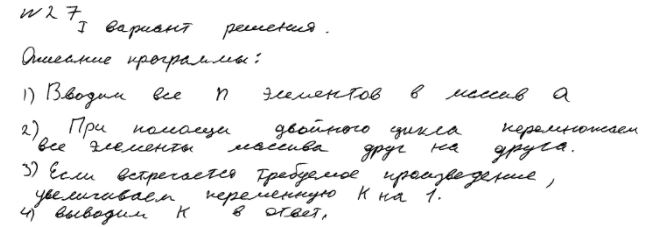 №27
I вариант решения.
Описание программы:
1) Вводим все n элементов в массив a
2) При помощи двойного цикла перемножаем
все элементы массива друг на друга.
3) Если встречается требуемое произведение,
увеличиваем переменную K на 1.
4) выводим K в ответ,